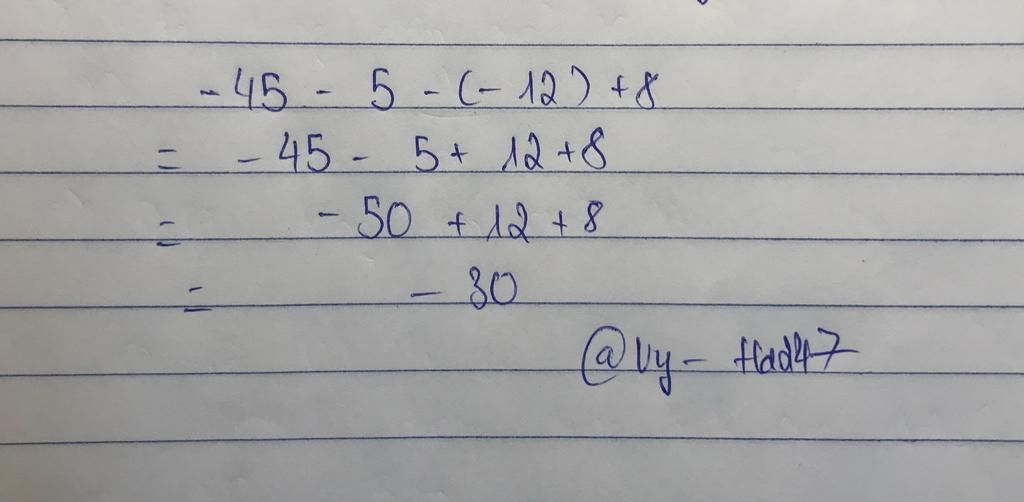 -45 - 5 - (-12) + 8
= -45 - 5 + 12 + 8
= -50 + 12 + 8
= -30
@Vy-